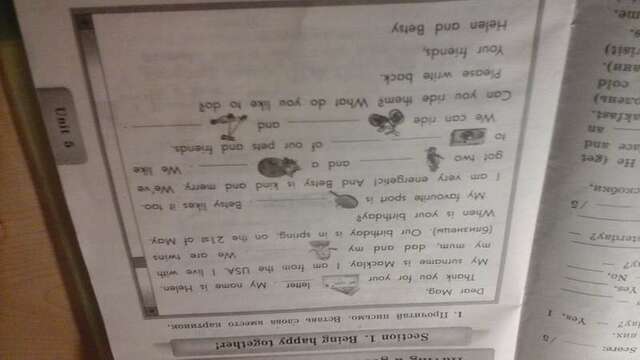 Section 1. Being happy together!
1. Прочитай письмо. Вставь слова вместо картинок.
Dear Mag,
Thank you for your letter. My name is Helen.
My surname is Macklay. I am from the USA. I live with
my mum, dad and my ________. We are twins
(близнецы). Our birthday is in spring, on the 21st of May.
When is your birthday?
My favourite sport is ________. Betsy likes it too.
I am very energetic! And Betsy is kind and merry. We've
got two ________ and a ________. We like
to ________ of our pets and friends.
We can ride ________ and ________.
Can you ride them? What do you like to do?
Please write back.
Your friends,
Helen and Betsy
Unit 5
Score: / 5
Yes, I
Yes,
No,
/ 5
скобки,
He (get)
and
an
cold